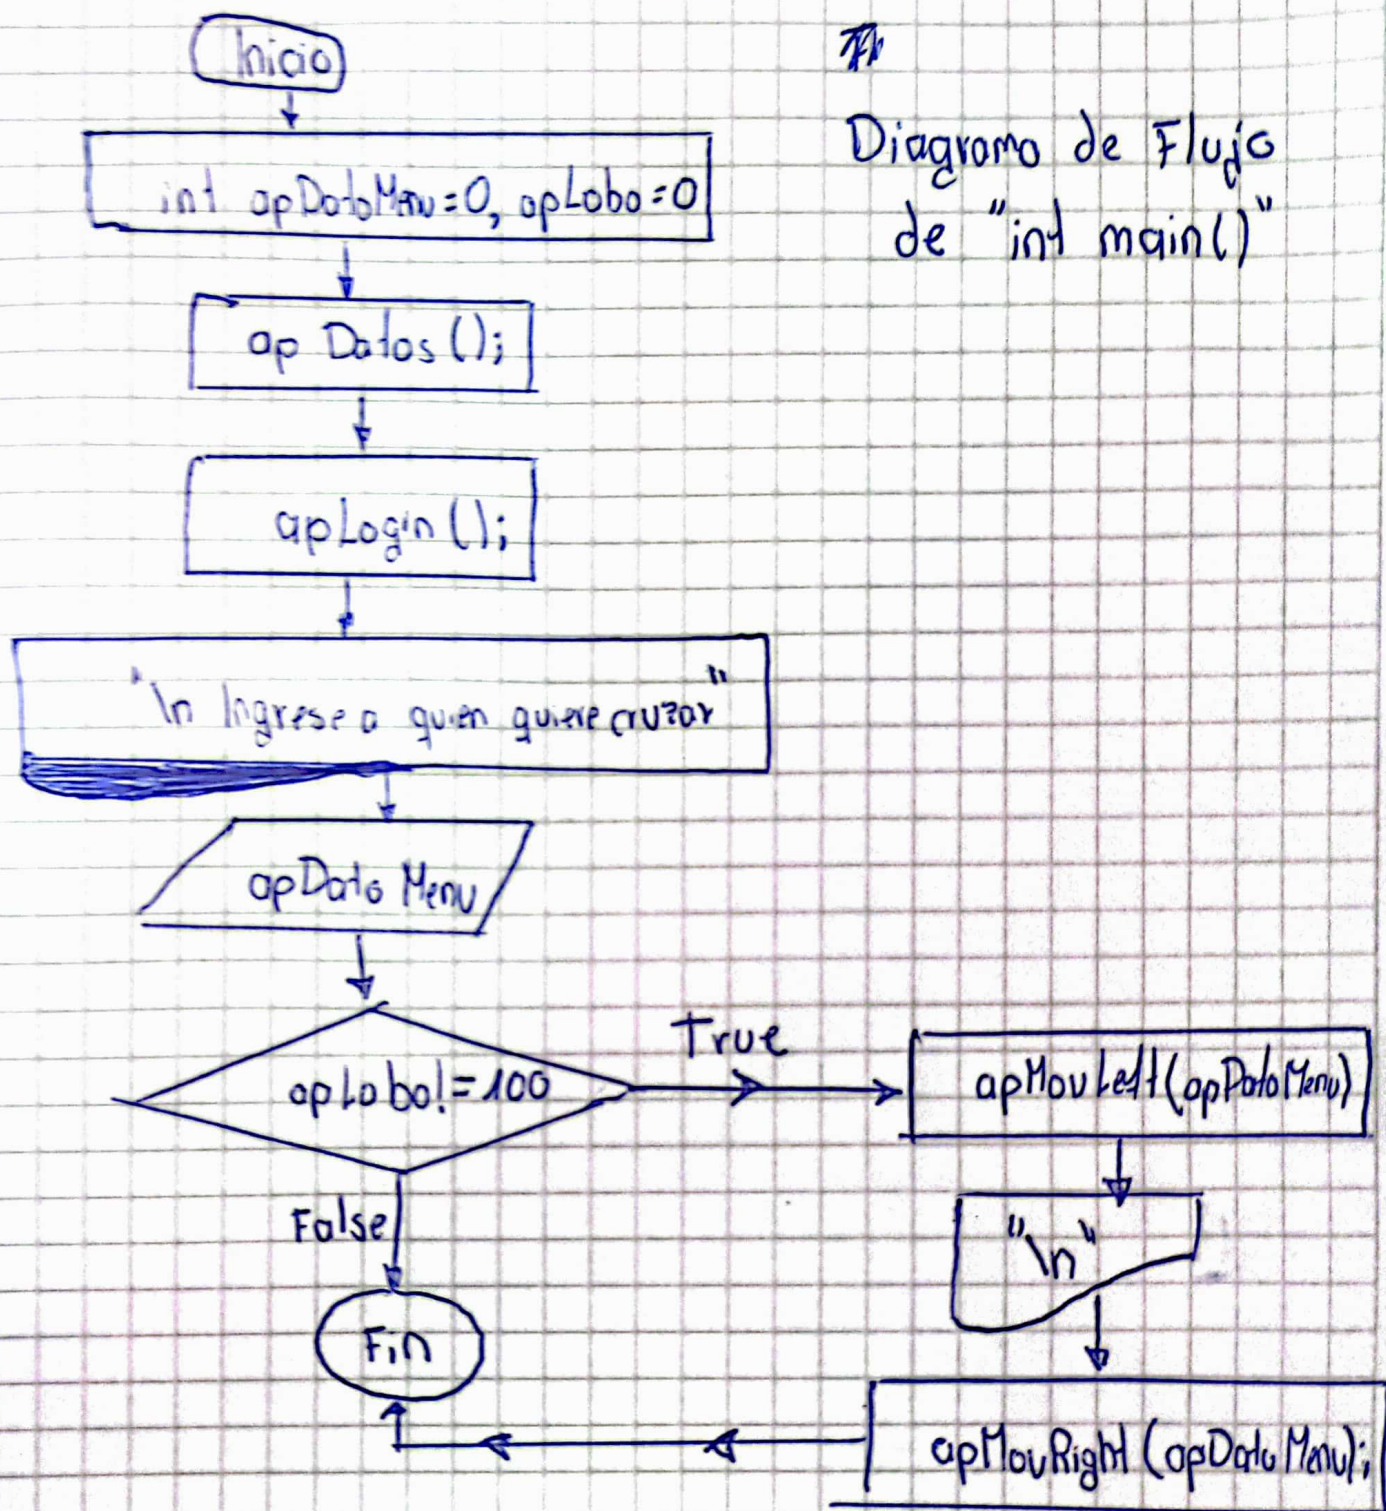 Inicio
Diagrama de Flujo
de "int main()"
int apDatoMenu=0, apLobo=0
ap Datos();
apLogin();
"\n Ingrese a quien quiere cruzar"
apDato Menu
apLobo!=100
True
apMovLeft(apDatoMenu)
False
"\n"
Fin
apMovRight (apDatoMenu);